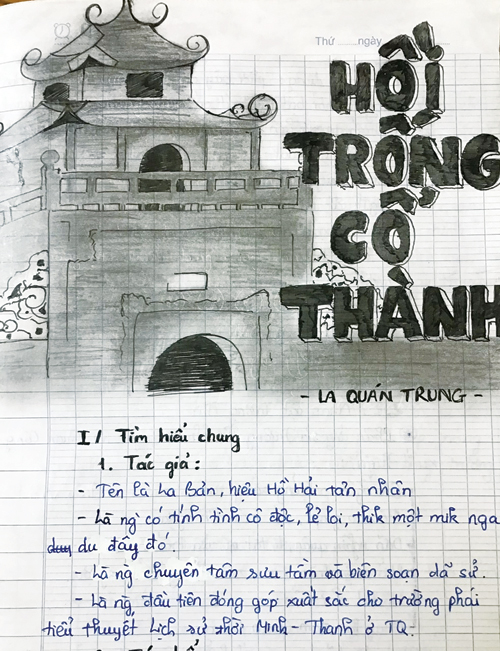 Thứ ngày
HỒI
TRỐNG
CỔ
THÀNH
- LA QUÁN TRUNG -
I/ Tìm hiểu chung
1. Tác giả:
- Tên là La Bản, hiệu Hồ Hải tản nhân
- Là ng̀ có tính tình cô độc, lẻ loi, thik một mik nga
du đây đó.
- Là ng̀ chuyên tâm sưu tầm và biên soạn dã sử.
- Là ng̀ đầu tiên đóng góp xuất sắc cho trường phái
tiểu thuyết Lịch sử thời Minh - Thanh ở TQ.